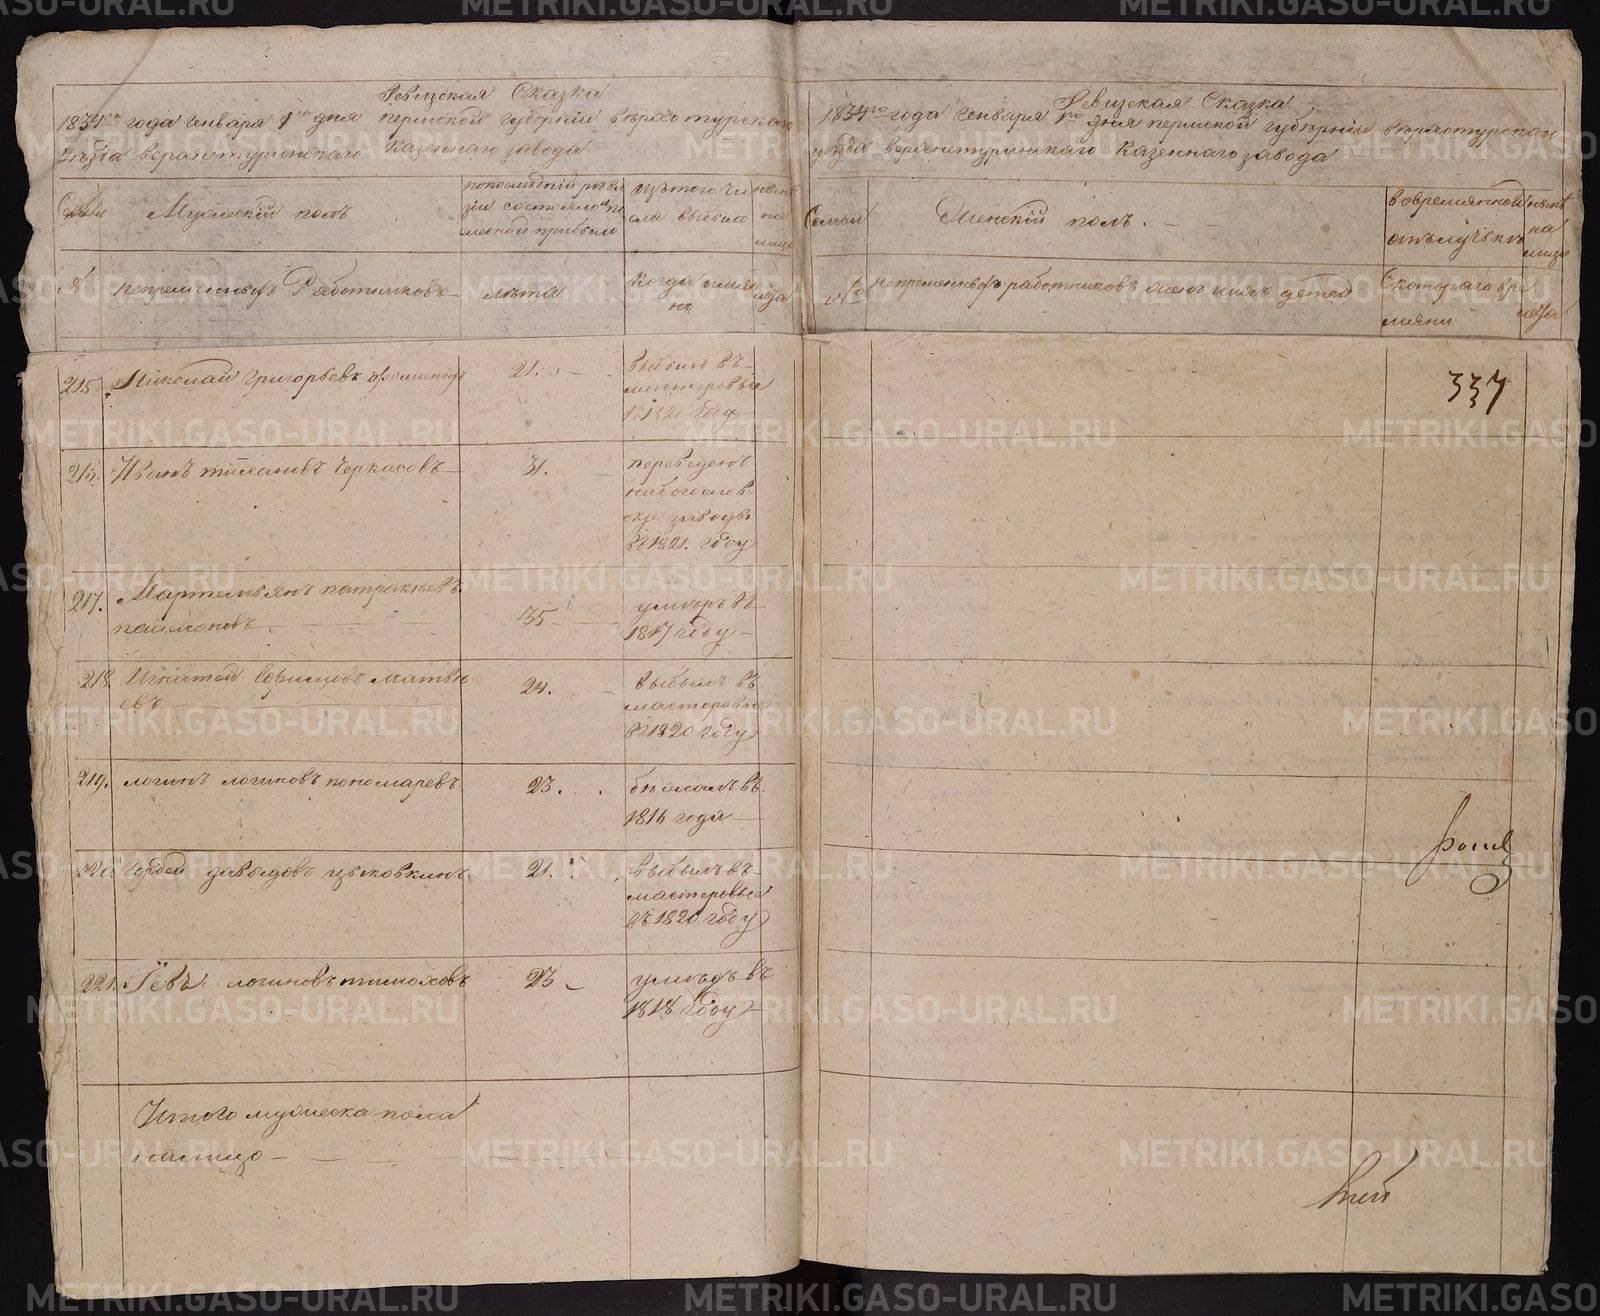 Ревизская Сказка
1834го года Генваря 1го дня пермской губернии верхотурскаго
уезда верхнетуринскаго казеннаго завода
Семьи
Мужеский полъ
по последней реви
зии состояло и по
оной прибыло
изътого чи
сла выбыло
ныне
на
лицо
№
непременныхъ Работниковъ
лета
когда имян
но
лета
215.
Николай Григорьевъ
21.
выбылъ въ
мастеровыя
въ 1820 году
216.
Иванъ Черкасовъ
31.
переведенъ
на богослов
ские заводы
въ 1821. году
217.
Мартемьянъ патракеевъ
35
умеръ въ
1817 году
218.
Игнатей Ефимовъ Матве
евъ
24.
выбылъ въ
мастеровые
въ 1820 году
219.
логинъ логиновъ пономаревъ
23.
бежалъ въ
1816 года
220.
Гордей давыдовъ цыковкинъ
21.
выбылъ въ
мастеровые
въ 1820 году
221.
Іевъ логиновъ
23
умеръ въ
1818 году
Итого мужеска пола
налицо
Ревизская Сказка
1834го года Генваря 1го дня пермской губернии верхотурскаго
уезда верхнетуринскаго казеннаго завода
Семьи
Женский полъ.
вовременной
отълучьке
ныне
на
лицо
№
непременныхъ работниковъ жены ихъ детей
Скотораго вре
мяни
лета
337
METRIKI.GASO-URAL.RU